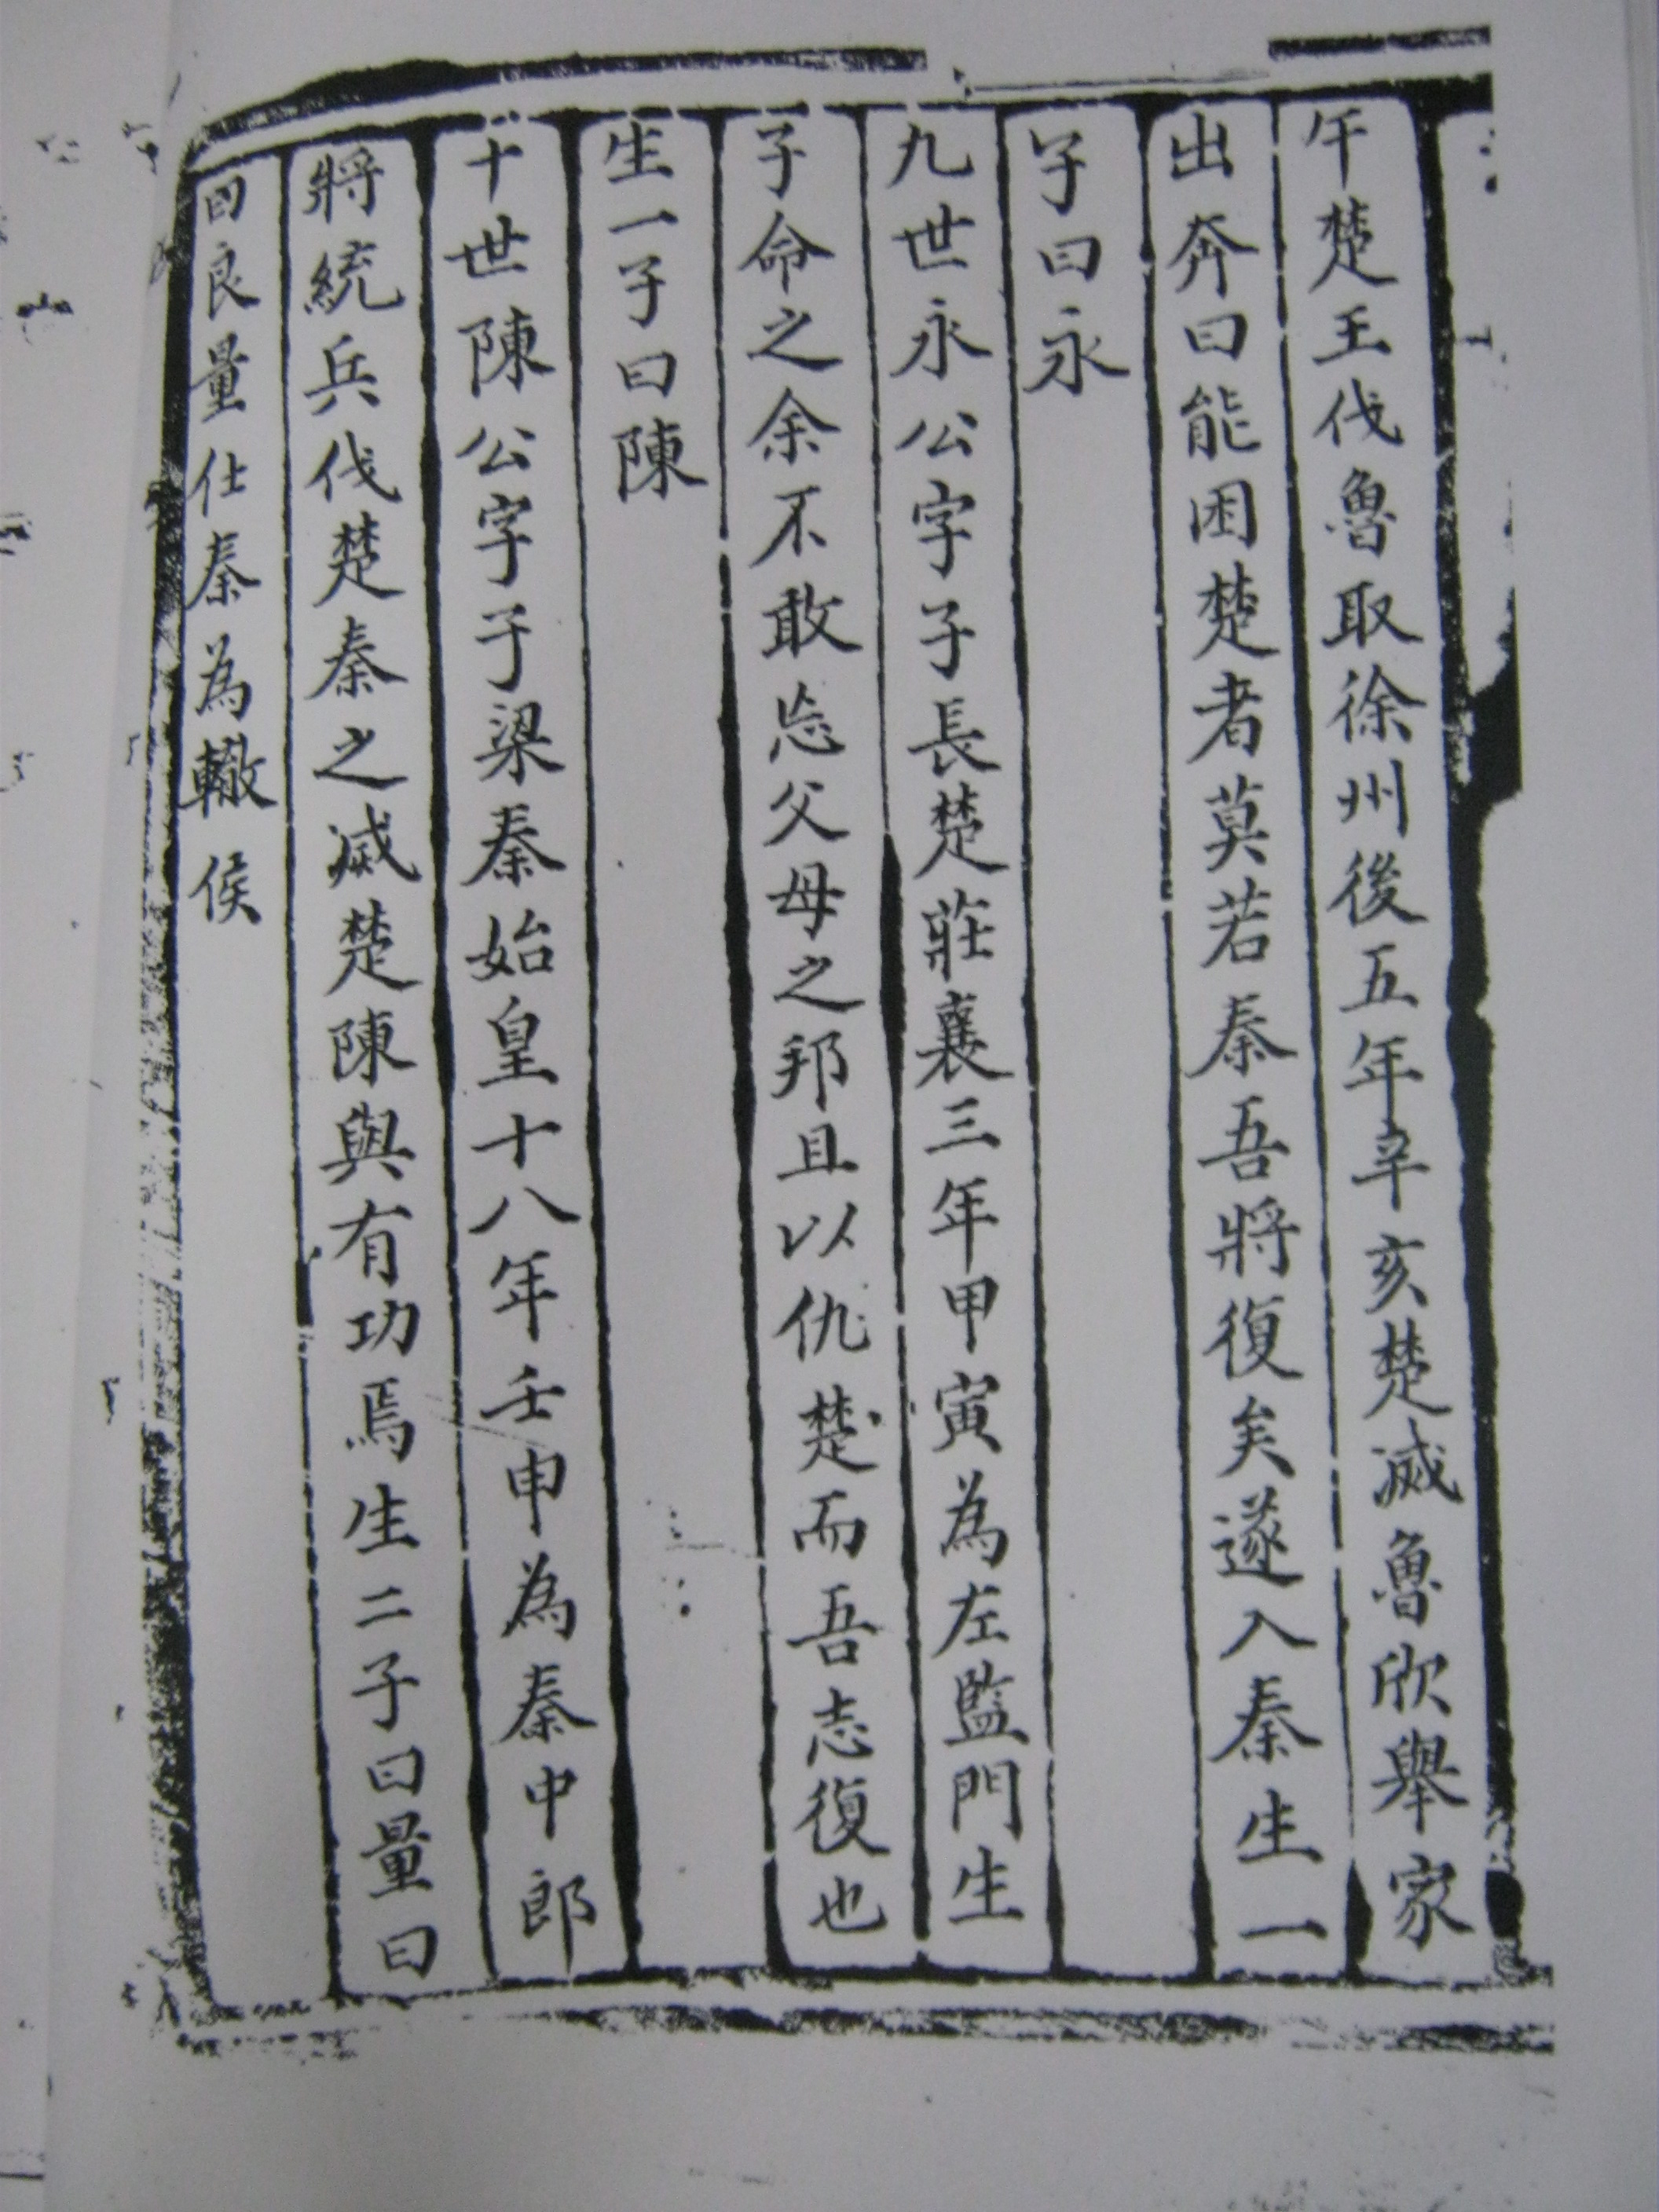 午楚王伐魯取徐州後五年辛亥楚滅魯欣舉家
出奔曰能困楚者莫若秦吾將復矣遂入秦生一
子曰永
九世永公字子長楚莊襄三年甲寅為左監門生
子命之余不敢忘父母之邦且以仇楚而吾志復也
生一子曰陳
十世陳公字子梁秦始皇十八年壬申為秦中郎
將統兵伐楚秦之滅楚陳與有功焉生二子曰量曰
曰良量仕秦為轍侯